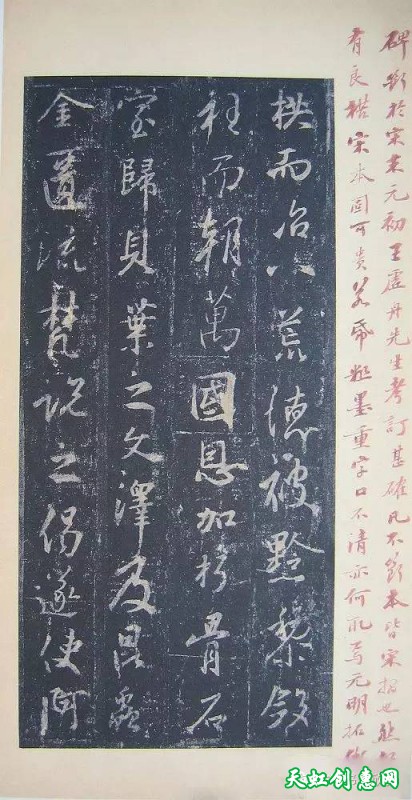 碑斷於宋末元初王虛舟先生考訂甚確凡不斷本皆宋搨也然
有良楛宋本固可貴若帋粗墨重字口不清亦何取焉元明拓
拱而治八荒德被黔黎斂
衽而朝萬國恩加朽骨石
室歸貝葉之文澤及昆蟲
金匱流梵說之偈遂使阿
天虹创意网